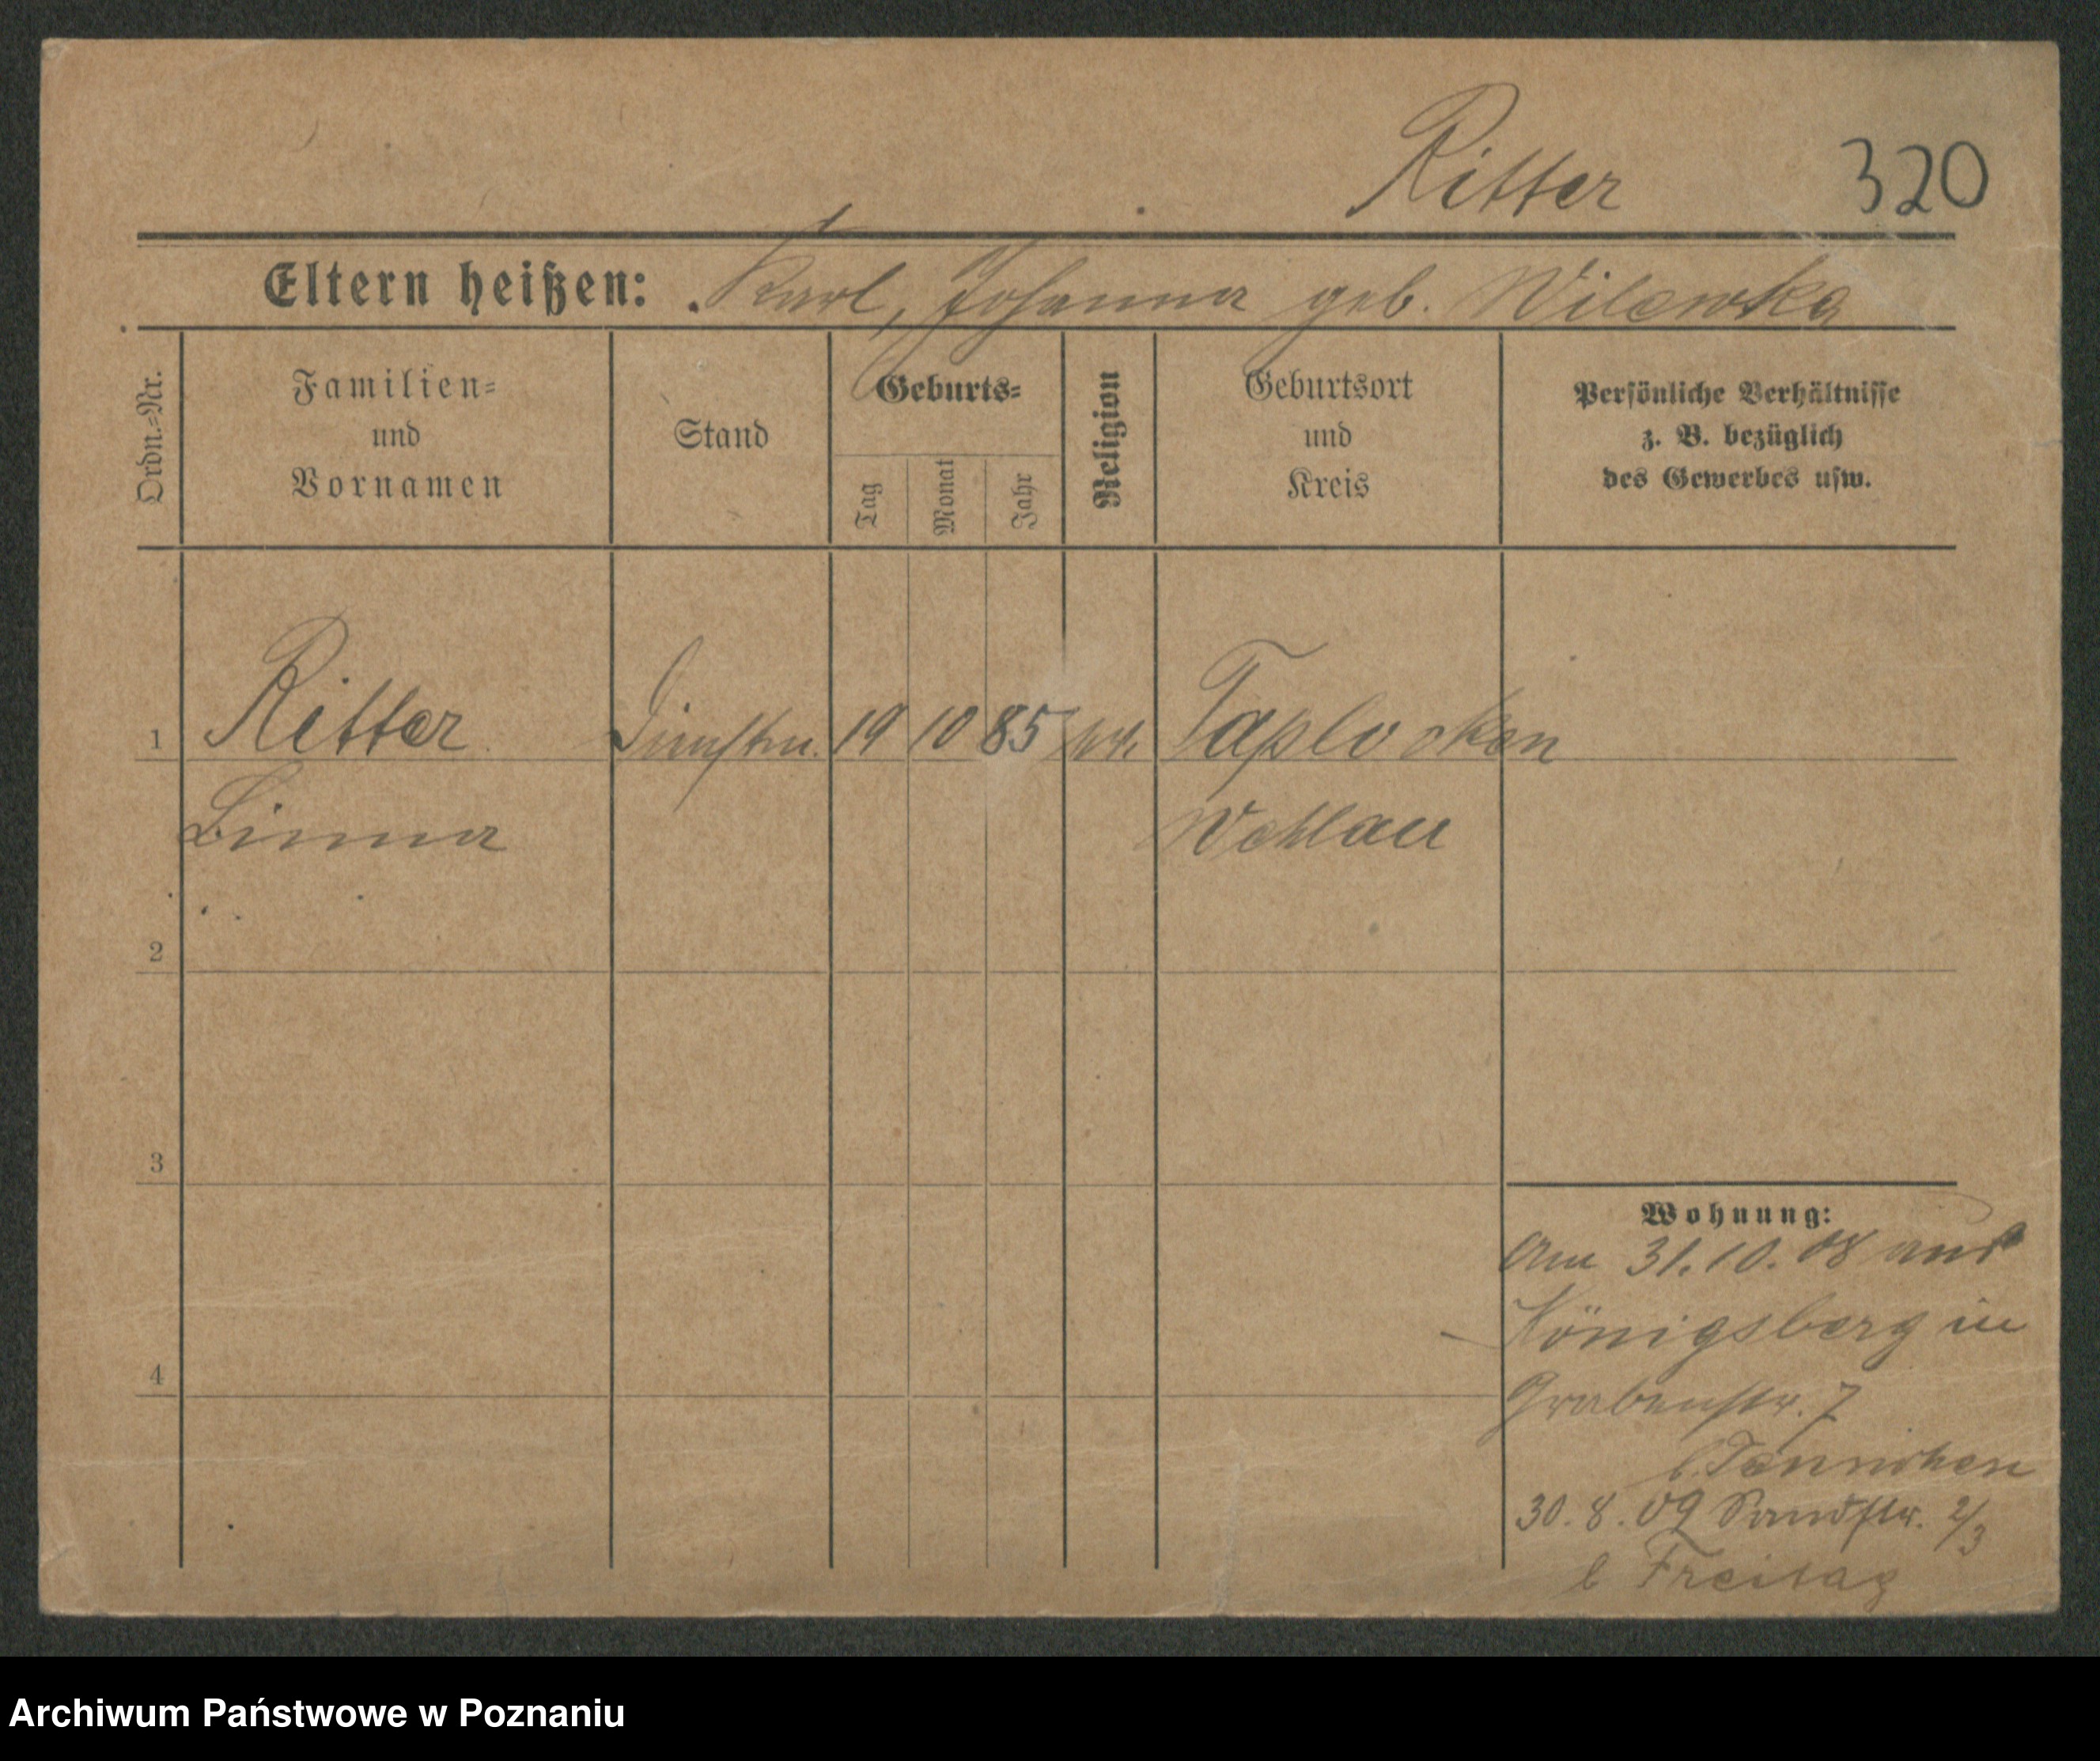 Ritter 320
Eltern heißen: Karl, Johanna geb. Wilewka
Ordn.=Nr.
Familien=
und
Vornamen
Stand
Geburts=
Tag
Monat
Jahr
Religion
Geburtsort
und
Kreis
Persönliche Verhältnisse
z. B. bezüglich
des Gewerbes usw.
1 Ritter 19 10 85 Taplacken
Wehlau
2
3
4
Wohnung:
Am 31.10.08 aus
Königsberg in
Grabenstr. 7
30.8.09 Sandstr. 2/3
b Freitag
Archiwum Państwowe w Poznaniu